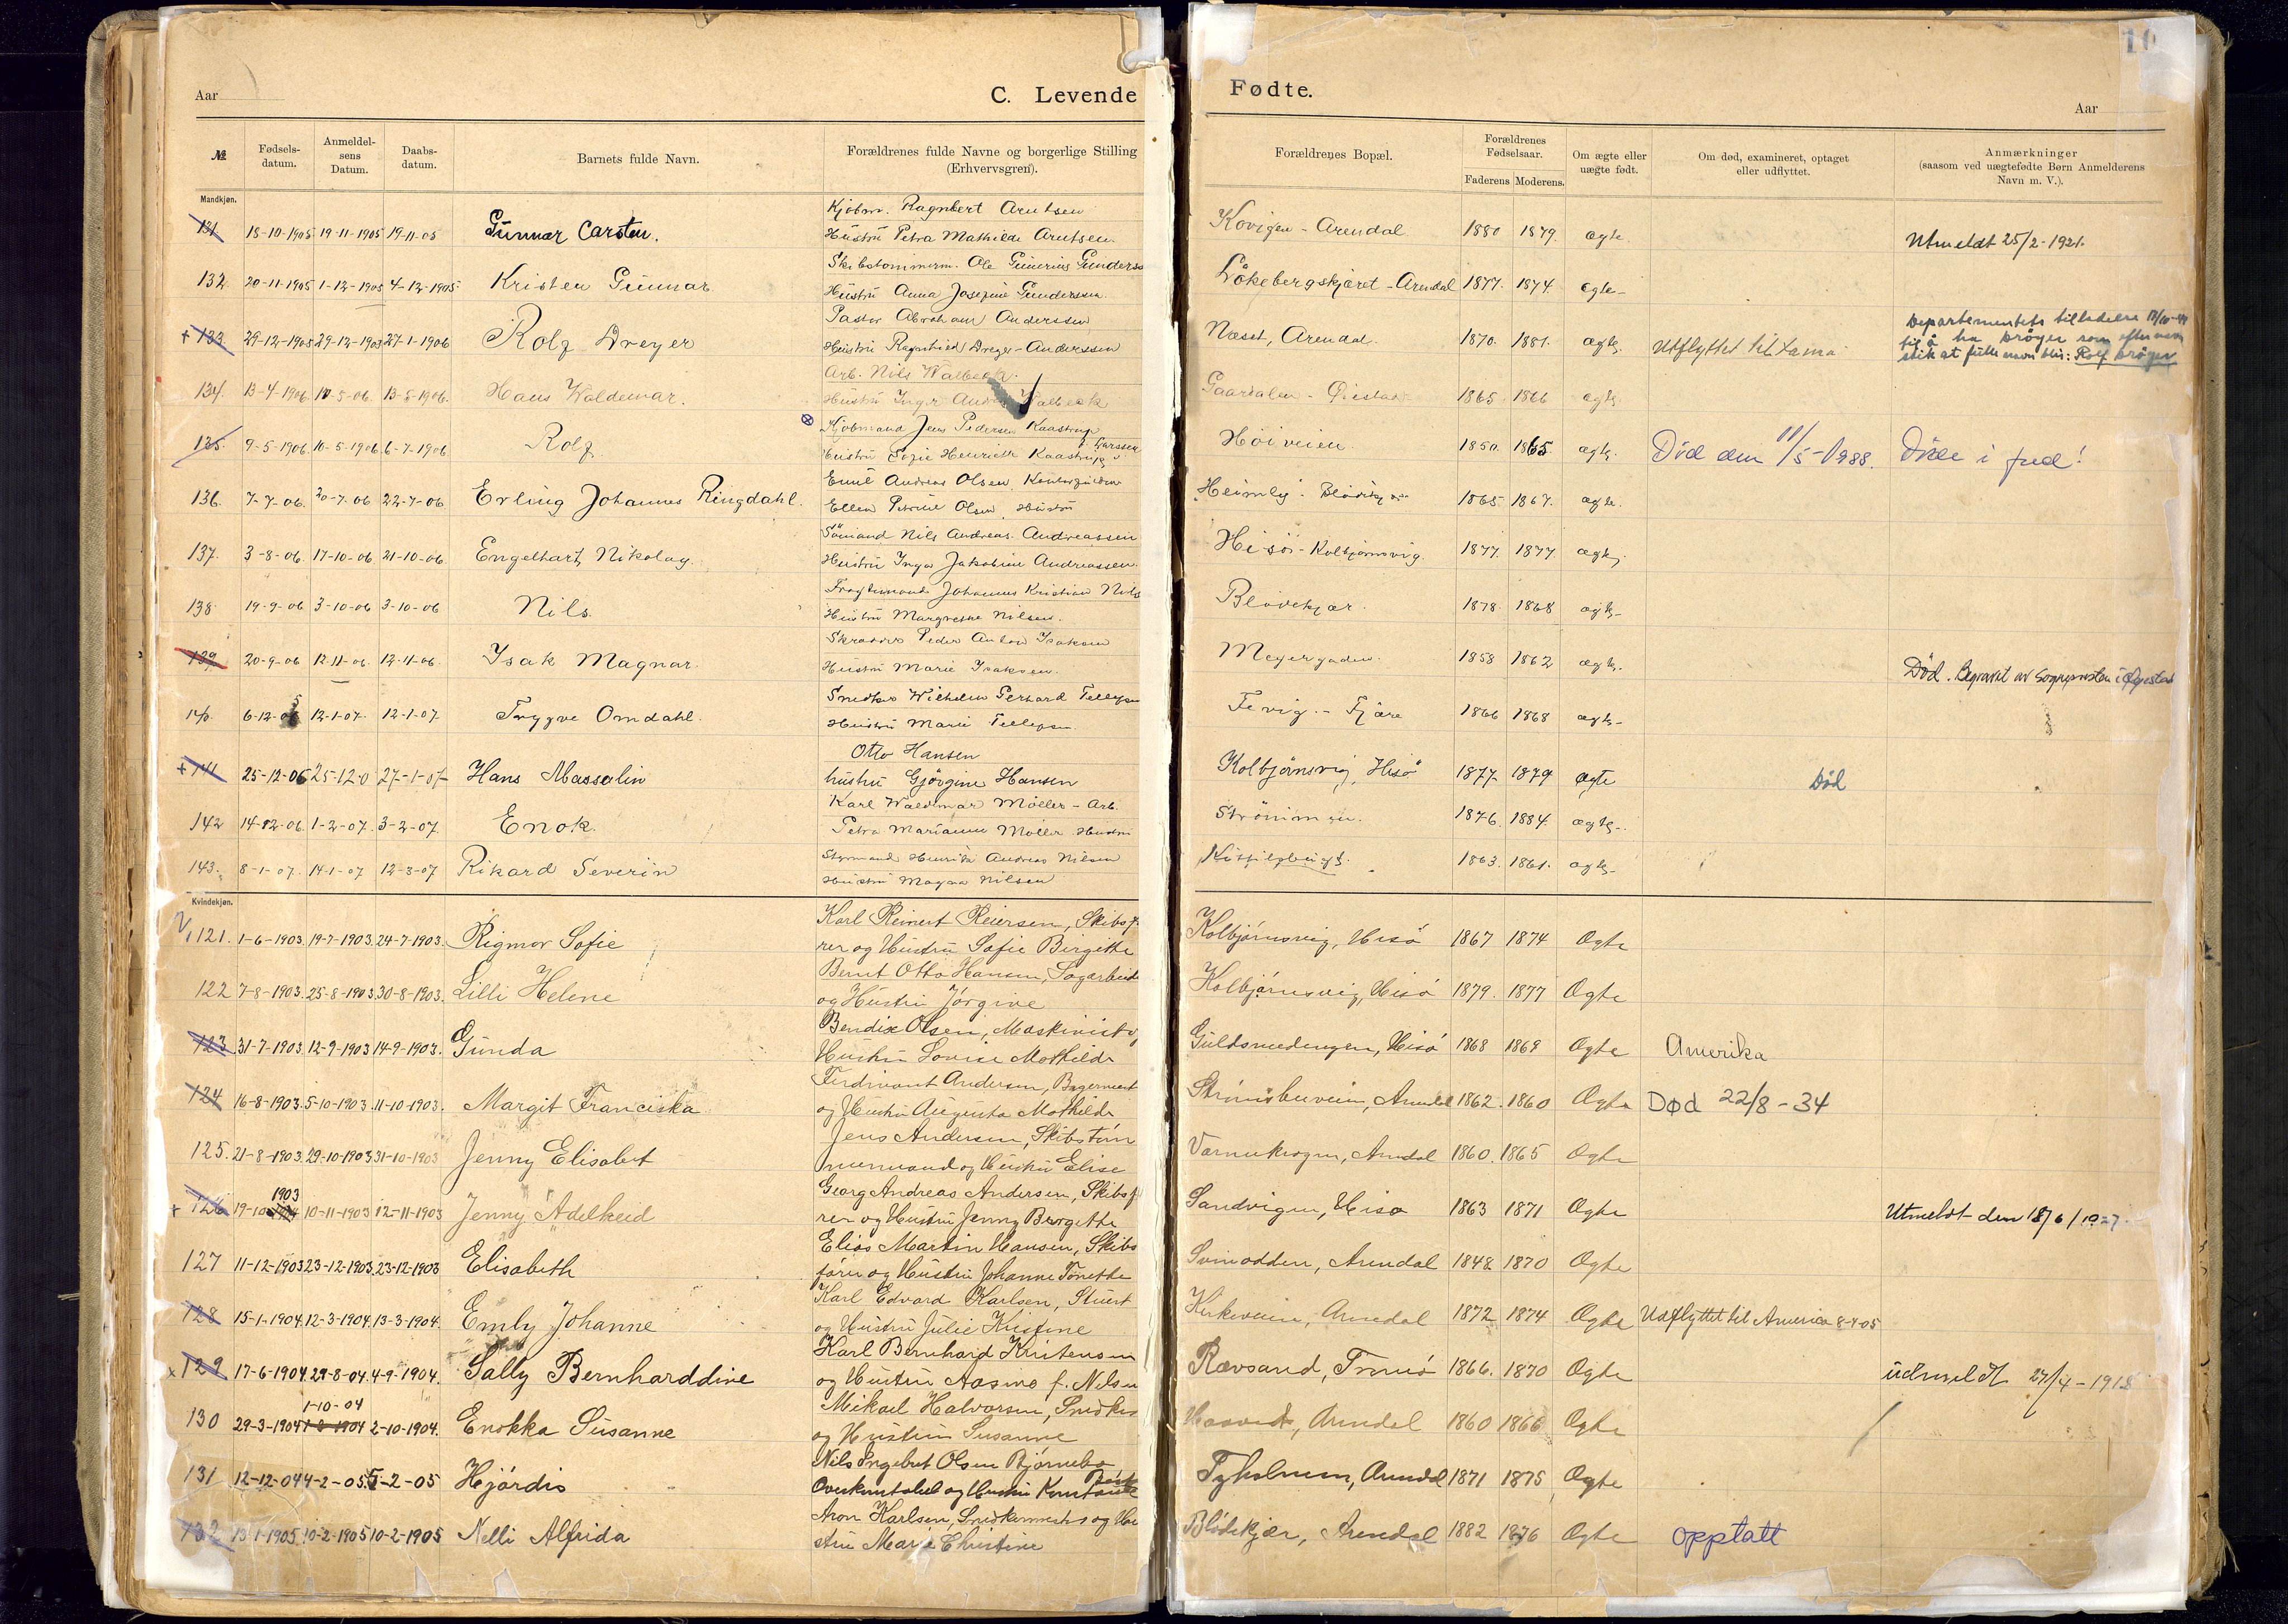 10
Aar
C. Levende
Fødte.
Aar
№
Fødsels-
datum.
Anmeldel-
sens
Datum.
Daabs-
datum.
Barnets fulde Navn.
Forældrenes fulde Navne og borgerlige Stilling
(Erhvervsgren).
Forældrenes Bopæl.
Forældrenes
Fødselsaar.
Faderens Moderens.
Om ægte eller
uægte født.
Om død, examineret, optaget
eller udflyttet.
Anmærkninger
(saasom ved uægtefødte Børn Anmelderens
Navn m. V.).
Mandkjøn.
Kjøbm. Ragnbert Arntsen
131 18-10-1905 19-11-1905 19-11-05 Gunnar Carsten. Hustru Petra Mathilde Arntsen. Kovigen - Arendal. 1880 1879. ægte. Utmeldt 25/2-1921.
Skibstømmerm. Ole Gunerius Gunderss
132 20-11-1905 1-12-1905 4-12-1905 Kristen Gunnar Hustru Anna Josefine Gunderssen. Lökebergskjæret - Arendal 1877. 1874. ægte-
Pastor Abraham Anderssen
+ 133. 29-12-1905 29-12-1905 27-1-1906 Rolf Dreyer Hustru Ragnhild Dreyer-Anderssen Næset, Arendal. 1870. 1881. ægte. Utflyttet til Lama
Departementets tilladelse 17/10-
til å ha Krøger som efternavn
slik at fulle navn blir: Rolf Krøger
Arb. Nils Walbeck.
134. 13-4-1906 10-5-06. 13-5-1906. Hans Waldemar. Hustru Inger Andrea Walbeck Gaardalen - Øiestad 1865 1866 ægte.
Kjøbmand Jens Pedersen Kaastrup
f. Larssen
135. 9-5-1906. 10-5-1906. 6-7-1906 Rolf. Hustru Sofie Henriette Kaastrup Höiveien. 1850. 1865. ægte. Död den 11/5-1988. Döde i fred!
Emil Andreas Olsen,
136. 7-7-06. 20-7-06 22-7-06 Erling Johannes Ringdahl. Ellen Petrine Olsen, Hustru Heimly. 1865 1867. ægte.
Sømand Nils Andreas Andreassen
137. 3-8-06. 17-10-06 21-10-06. Engelhart Nikolay. Hustru Inga Jakobine Andreassen. Hisö - Kolbjørnsvig. 1877. 1877. ægte.
Johannes Kristian Nils
138. 19-9-06 3-10-06 3-10-06 Nils. Hustru Margrethe Nilsen. Blødekjær. 1878. 1868 ægte-
Skrædder Peder Anton Isaksen
139. 20-9-06 12-11-06. 12-11-06. Isak Magnar. Hustru Marie Isaksen. Meyergaden. 1858 1862 ægte. Död. Begravet av Sogneprsten i Öyestad
Snedker Wilhelm Gerhard Tellefsen
140. 6-12-05 12-1-07. 12-1-07 Trygve Omdahl. Hustru Marie Tellefsen. Fevig - Fjære 1866 1868 ægte-
Otto Hansen
+ 141 25-12-06 25-12-0 27-1-07 Hans Massalin hustru Gjörgine Hansen Kolbjörnsvig, Hisö 1877 1879 ægte Död
Karl Waldemar Möller - Arb.
142 14-12-06 1-2-07. 3-2-07. Enok. Petra Marianne Möller. Hustru Strömmen. 1876. 1884. ægte-
Styrmand Henrik Andreas Nilsen
143. 8-1-07. 14-1-07 12-3-07 Rikard Severin Hustru Magna Nilsen Kittilsbugt. 1863. 1861. ægte-
Kvindekjøn.
Karl Reinert Reiersen, Skibsf.
V 121. 1-6-1903. 19-7-1903. 24-7-1903. Rigmor Sofie rer og Hustru Sofie Birgitte Kolbjørnsvig, Hisö 1867 1874 Ægte
Bernt Otto Hansen, Sagarbeide
122 7-8-1903. 25-8-1903. 30-8-1903. Lilli Helene og Hustru Jörgine Kolbjørnsvig, Hisö 1879. 1877 Ægte
Bendix Olsen, Maskinist o
123 31-7-1903 12-9-1903 14-9-1903. Gunda Hustru Lovise Mathilde Guldsmedengen, Hisö 1868 1869 Ægte Amerika
Ferdinant Andersen, Bagermest
124 16-8-1903. 5-10-1903. 11-10-1903. Margit Franciska og Hustru Augusta Mathilde Strömsbuveien, Arendal 1862. 1860 Ægte Død 22/8-34
Jens Andersen, Skibstöm
125. 21-8-1903. 29-10-1903 31-10-1903 Jenny Elisabet mermand og Hustru Elise Varnekrogen, Arendal 1860. 1865 Ægte
1903
Georg Andreas Andersen, Skibsf
+ 126 19-10-1904 10-11-1903 12-11-1903 Jenny Adelheid rer og Hustru Jenny Bergitte Sandvigen, Hisö 1863 1871 Ægte Utmeldt den 18/6/1927
Elias Martin Hansen, Skibs
127 11-12-1903 23-12-1903. 23-12-1903 Elisabeth förer og Hustru Johanne Tönette Svinodden, Arendal 1848 1870 Ægte
Karl Edvard Karlsen, Stuert
128 15-1-1904. 12-3-1904. 13-3-1904. Emly Johanne og Hustru Julie Kristine Kirkeveien, Arendal 1872 1874 Ægte Udflyttet til America 8-4-05
Karl Bernhard Kristensen
x 129 17-6-1904. 29-8-04. 4-9-1904. Sally Bernharddine og Hustru Aasine f. Nilsen Rævsand, Tromö 1866. 1870 Ægte udmeldt 27/4-1918
1-10-04
Mikael Halvorsen, Snedker
130 29-3-1904 1-8-1904 2-10-1904. Enokka Susanne og Hustru Susanne Hasved, Arendal 1860 1866 Ægte
Nils Ingebret Olsen Bjørnebo
131 12-12-04 4-2-05. 5-2-05 Hjördis Overkonstabel og Hustru Konstanse Tyholmen, Arendal 1871 1875 Ægte
Aron Karlsen, Snedkermester og Hu
132 13-1-1905. 10-2-1905 10-2-1905 Nelli Alfrida stru Marie Christine Blödekjær, Arendal 1882 1876 Ægte opptatt